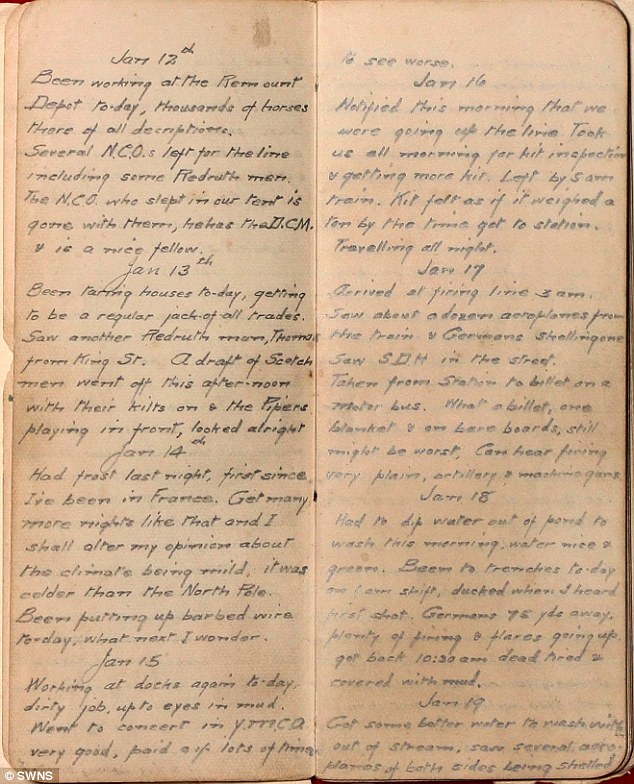 Jan 12th
Been working at the Remount
Depot to-day, thousands of horses
there of all decriptions.
Several N.C.O.s left for the line
including some Redruth men.
The N.C.O. who slept in our tent is
gone with them, he has the D.C.M.
& is a nice fellow.
Jan 13th
Been taring houses to-day, getting
to be a regular jack-of-all trades.
Saw another Redruth man, Thomas
from King St. A draft of Scotch
men went off this after-noon
with their kilts on & the Pipers
playing in front, looked alright
Jan 14th
Had frost last night, first since
I've been in France. Get many
more nights like that and I
shall alter my opinion about
the climate being mild, it was
colder than the North Pole.
Been putting up barbed wire
to-day, what next I wonder.
Jan 15
Working at docks again to-day,
dirty job, up to eyes in mud.
Went to concert in Y.M.C.A
very good, paid lots of time
to see worse.
Jan 16
Notified this morning that we
were going up the line. Took
us all morning for kit inspection
& getting more kit. Left by 5am
train. Kit felt as if it weighed a
ton by the time got to station.
Travelling all night.
Jan 17
Arrived at firing line 3 am.
Saw about a dozen aeroplanes from
the train & Germans shelling one
Saw S.D.H in the street.
Taken from Station to billet on a
motor bus. What a billet, one
blanket & on bare boards, still
might be worse, Can hear firing
very plain, artillery & machine guns
Jan 18
Had to dip water out of pond to
wash this morning, water nice &
green. Been to trenches to-day
on 1 am shift, ducked when I heard
first shot. Germans 75 yds away,
plenty of firing & flares going up.
got back 10:30 am dead tired &
covered with mud.
Jan 19
Got some better water to wash with
out of stream, saw several aero-
planes of both sides being shelled
© SWNS